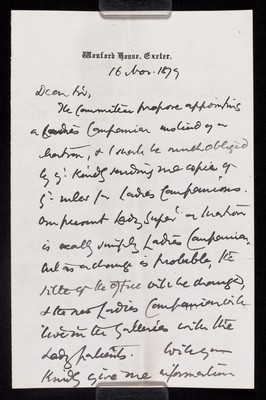 Wonford House, Exeter.
16 Nov. 1879
Dear Sir,
The Committee propose appointing
a Ladies Companion instead of a
Matron, & I shall be much obliged
by yr. kindly sending me copies of
yr. rules for Ladies Companions.
Our present Lady Super. or Matron
is really simply Ladies Companion,
but as a change is probable, the
title of the office will be changed,
& the new Ladies Companion will
live in the Galleries with the
Lady patients. Will you
kindly give me information